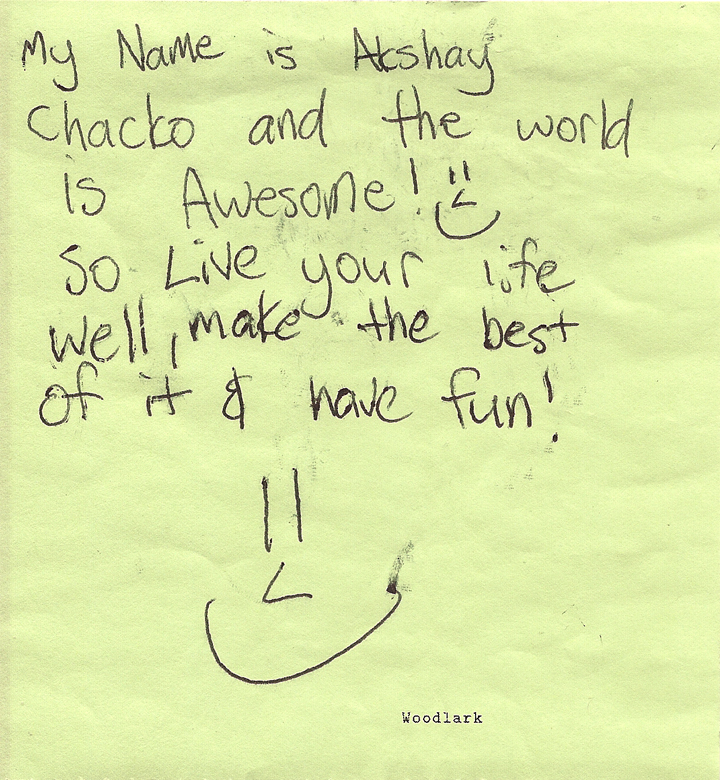 My Name is Akshay
Chacko and the world
is Awesome!
So Live your life
well, make the best
of it & have fun!
Woodlark